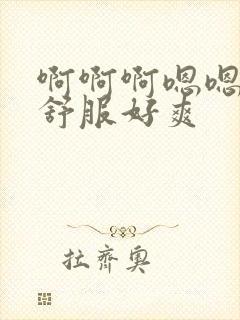 啊啊啊嗯嗯
舒服好爽
拉齐奥